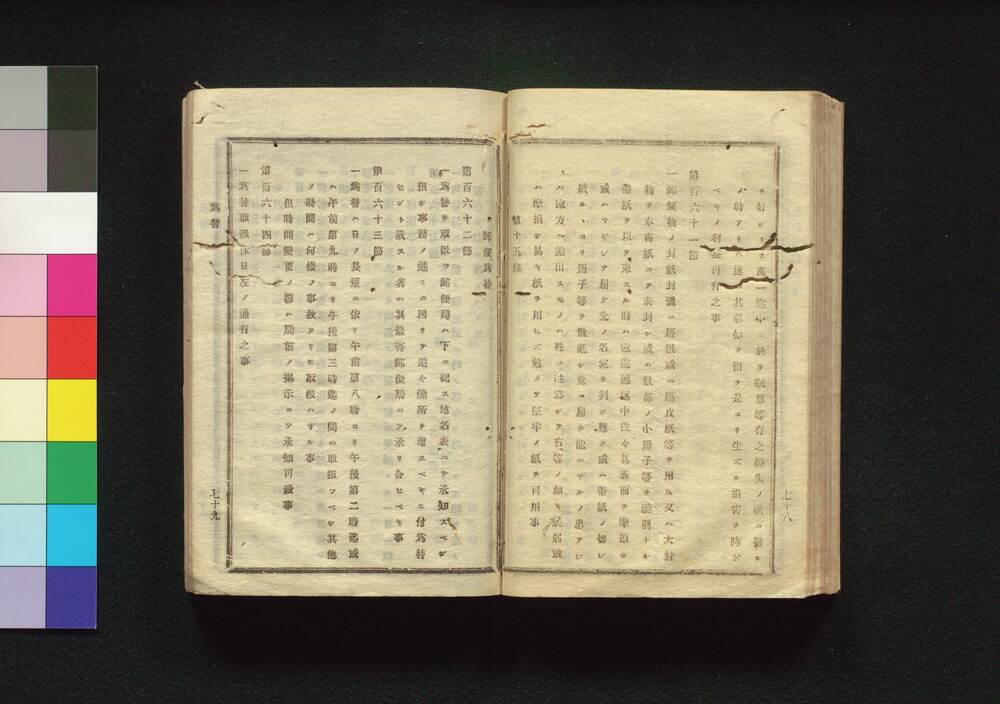 ヲ好シトス萬一途中ニ於テ賊難等有之紛失ノ節ニ罹ル
ノ時アリ速其報知ヲ得テ是ヨリ生ズル損害ヲ防グ
ベキノ利益可有之事
第百六十一節
一郵便物ノ封紙封嚢ニ唐紙或ハ雁皮紙等ヲ用ヒ又ハ大封
物ヲ本書紙ニテ表封シ或ハ數部ノ小冊子等ヲ脆弱ナル
帶紙ヲ以テ束スル時ハ遠途遞送中往々其表面ヲ摩損シ
或ハチギレテ届ケ先ノ名宛ヲ判シ難ク或ハ帶紙ノ切レ
破ルヽヨリ冊子等ヲ散亂シ竟ニ届ケ能ハザルノ患アレ
バ遠方ヘ差出スモノハ殊ニ注意シテ右等ノ如キ脆弱或
ハ摩損シ易キ紙ヲ用ヒズ勉メテ堅牢ノ紙ヲ可用事
第十五
七十八
郵便爲替
第百六十二節
一爲替ヲ取扱フ郵便局ハ下ニ記ス地名表ニテ承知スベシ
但シ事務ノ進ミニ因リテ追々箇所ヲ增スベキニ付爲替
セント欲スル者ハ其最寄郵便局ニテ承リ合セベキ事
第百六十三節
一爲替ハ日ノ長短ニ依リ午前第八時ヨリ午後第二時迄或
ハ午前第九時ヨリ午後第三時迄ノ間ニ取扱フベシ其他
ノ時間ハ何樣ノ事故アリトモ取扱ハザル事
但時間變更ノ節ハ局前ノ揭示ニテ承知可致事
第百六十四節
一爲替取扱休日左ノ通有之事
爲替
七十九